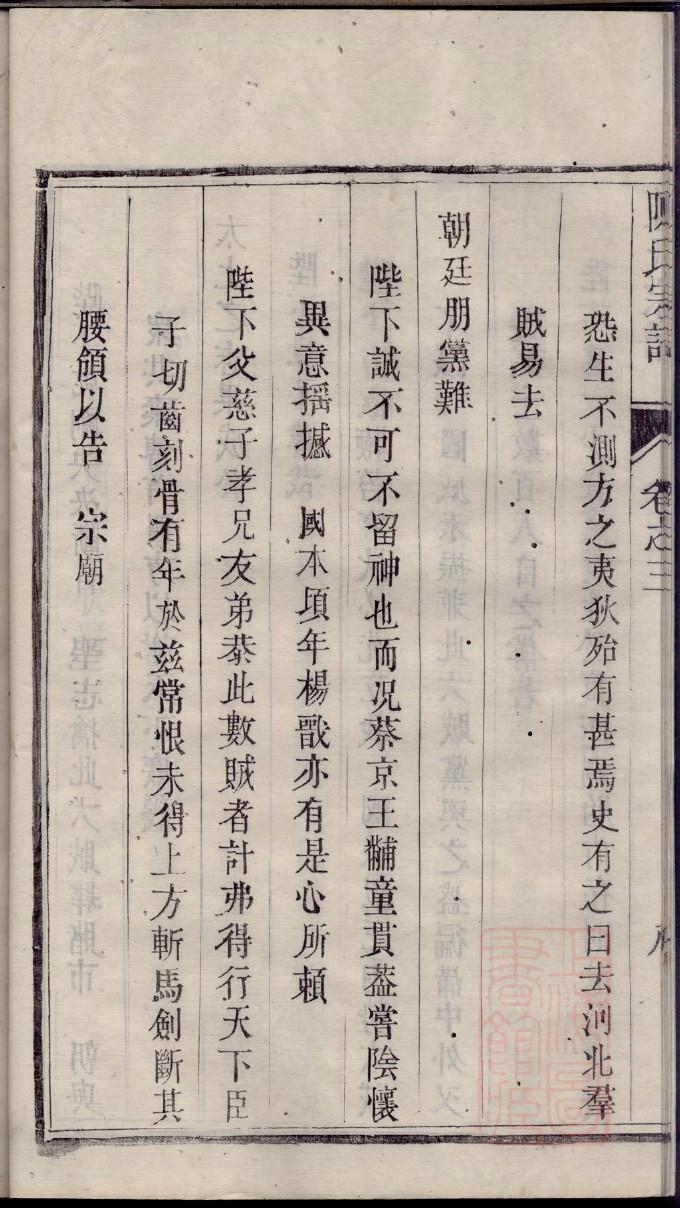 陳氏宗譜
卷之三
恐生不測方之夷狄殆有甚焉史有之曰去河北羣
賊易去
朝廷朋黨難
陛下誠不可不留神也而况蔡京王黼童貫葢嘗陰懷
異意揺撼 國本頃年楊戩亦有是心所頼
陛下父慈子孝兄友弟恭此數賊者計弗得行天下臣
子切齒刻骨有年於兹常恨未得上方斬馬劍斷其
腰領以告 宗廟